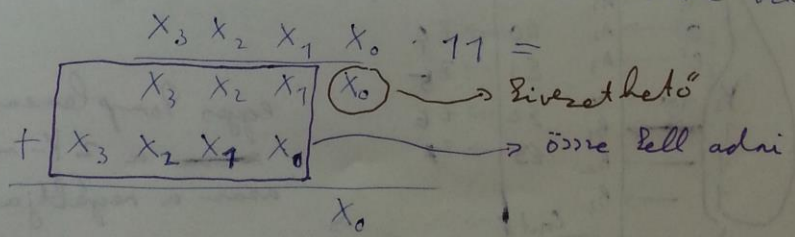 X₃ X₂ X₁ X₀ · 11 =
X₃ X₂ X₁ X₀ → kivezethető
+ X₃ X₂ X₁ X₀ → össze kell adni
X₀